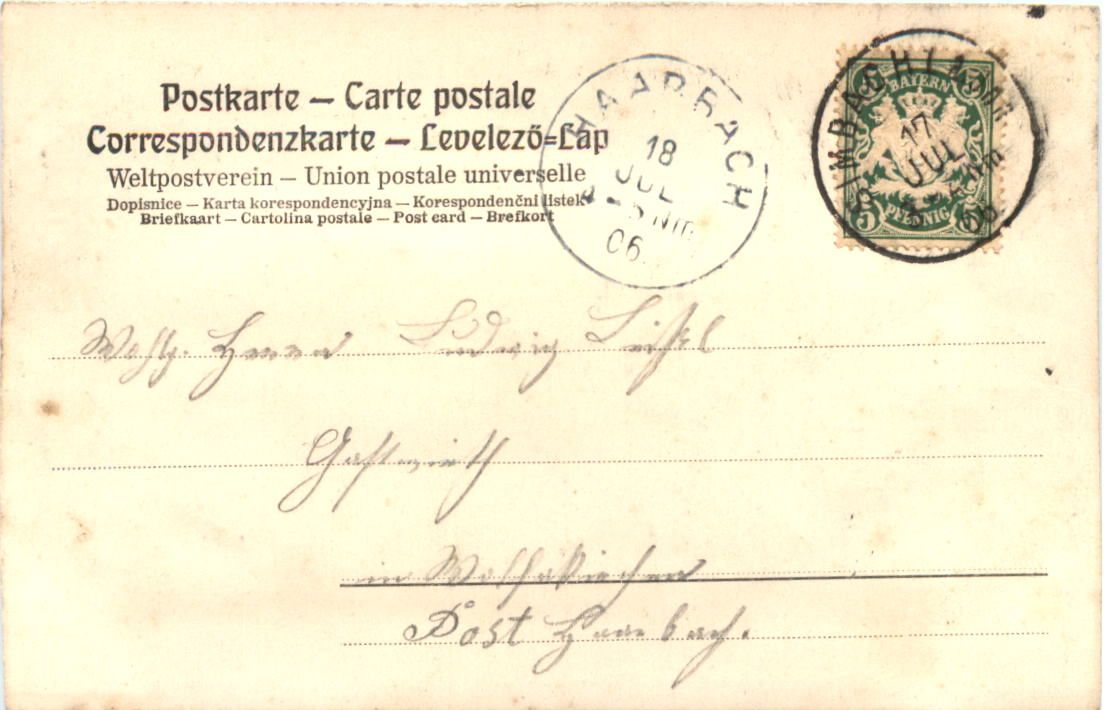 Postkarte – Carte postale
Correspondenzkarte – Levelező=Lap
Weltpostverein – Union postale universelle
Dopisnice – Karta korespondencyjna – Korespondenční listek
Briefkaart – Cartolina postale – Post card – Brefkort
HAARBACH
18
JUL
06
SIMBACH
17
JUL
06
BAYERN
5 5
PFENNIG
5 5
Herrn Ludwig
Gastwirth
in Wolfakirchen
Post Haarbach.